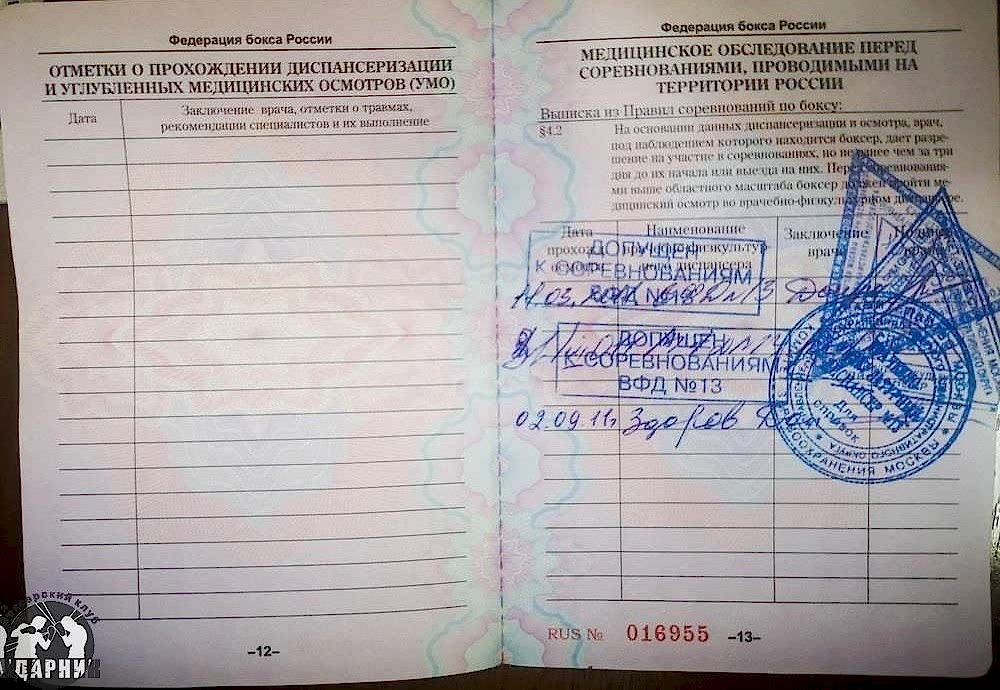 Федерация бокса России
ОТМЕТКИ О ПРОХОЖДЕНИИ ДИСПАНСЕРИЗАЦИИ
И УГЛУБЛЕННЫХ МЕДИЦИНСКИХ ОСМОТРОВ (УМО)
Дата
Заключение врача, отметки о травмах,
рекомендации специалистов и их выполнение
–12–
УДАРНИК
Федерация бокса России
МЕДИЦИНСКОЕ ОБСЛЕДОВАНИЕ ПЕРЕД
СОРЕВНОВАНИЯМИ, ПРОВОДИМЫМИ НА
ТЕРРИТОРИИ РОССИИ
Выписка из Правил соревнований по боксу:
§4.2 На основании данных диспансеризации и осмотра, врач,
под наблюдением которого находится боксер, дает разре-
шение на участие в соревнованиях, но не ранее чем за три
дня до их начала или выезда на них. Перед соревнования-
ми выше областного масштаба боксер должен пройти ме-
дицинский осмотр во врачебно-физкультурном диспансере.
Дата
Наименование
Заключение
врача
ДОПУЩЕН
К СОРЕВНОВАНИЯМ
ВФД №13
ДОПУЩЕН
К СОРЕВНОВАНИЯМ
ВФД №13
02.09.11г Здоров
Для
справок
ЗДРАВООХРАНЕНИЯ МОСКВЫ
RUS № 016955 –13–